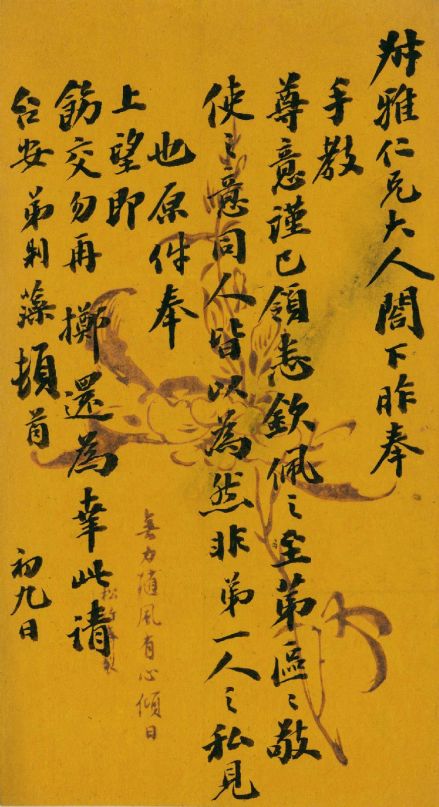 叔雅仁兄大人閣下昨奉
手教
尊意謹已領悉欽佩之至第區〻敬
使之意同人皆以為然非弟一人之私見
也原件奉
上望即
飭交勿再擲還為幸此請
台安 弟制藻頓首 初九日
無力隨風有心傾日
松竹齋製